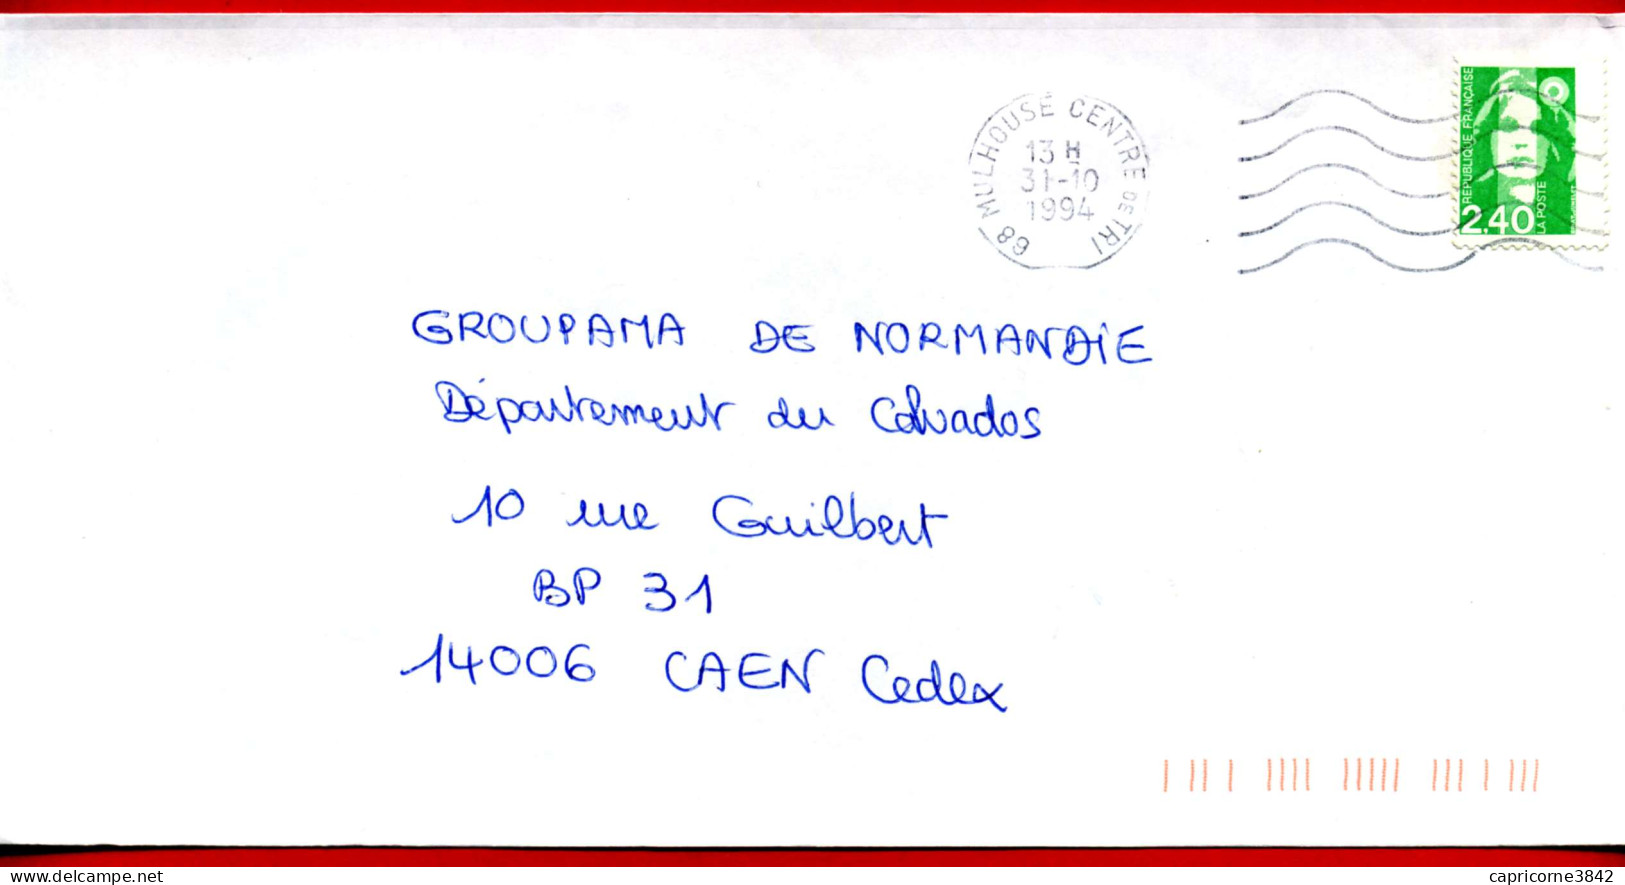 68 MULHOUSE CENTRE DE TRI
13 H
31-10
1994
REPUBLIQUE FRANÇAISE
2,40
LA POSTE
GROUPAMA DE NORMANDIE
Département du Calvados
10 rue Guilbert
BP 31
14006 CAEN Cedex
www.delcampe.net
capricorne3842